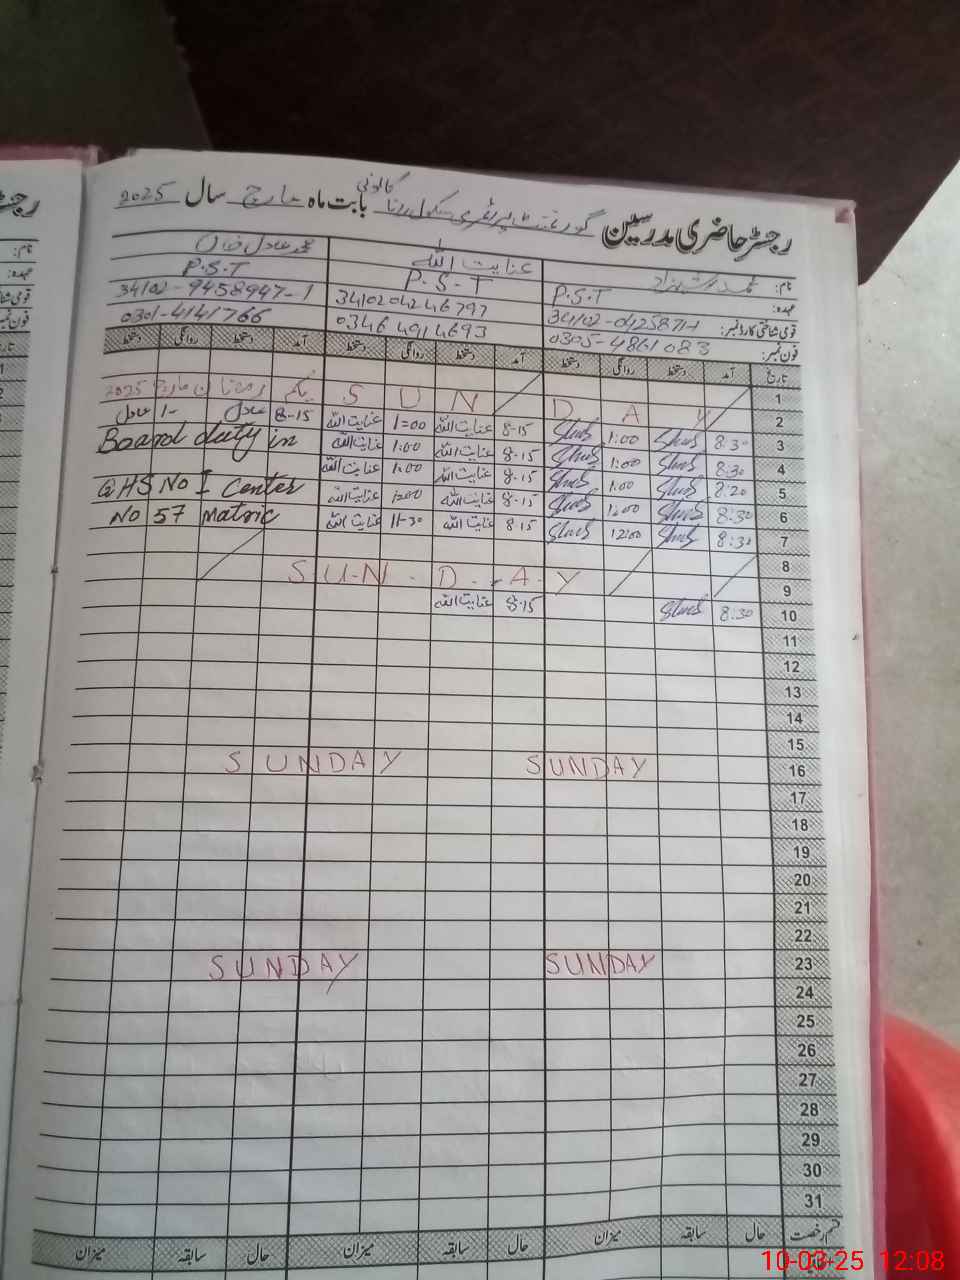 رجسٹر حاضری مدرسین گورنمنٹ پرائمری سکول کالونی بابت ماہ مارچ سال 2025
نام: محمد شہزاد عنایت اللہ محمد عادل خان
عہدہ: P.S.T P.S.T P.S.T
قومی شناختی کارڈ نمبر: 34102-0425871-1 3410204246797 34102-9458947-1
فون نمبر: 0305-4861083 0346 4914693 0301-4141766
تاریخ آمد دستخط روانگی دستخط آمد دستخط روانگی دستخط آمد دستخط روانگی دستخط
1 یکم رمضان مارچ 2025
2 S U N D A Y
3 8:30 1:00 8-15 عنایت اللہ 1=00 عنایت اللہ 8-15 عادل 1- عادل
4 8:30 1:00 8-15 عنایت اللہ 1:00 عنایت اللہ Board duty in
5 8:20 1:00 8-15 عنایت اللہ 1:00 عنایت اللہ
6 8:30 1:00 8-15 عنایت اللہ 1:00 عنایت اللہ GHS No I Center
7 8:30 12:00 8-15 عنایت اللہ 11-30 عنایت اللہ No 57 Matric
8
9 S U N . D . A . Y
10 8:30 8-15 عنایت اللہ
11
12
13
14
15
16 SUNDAY SUNDAY
17
18
19
20
21
22
23 SUNDAY SUNDAY
24
25
26
27
28
29
30
31
قسم رخصت حال سابقہ میزان حال سابقہ میزان حال سابقہ میزان
10-03-25 12:08